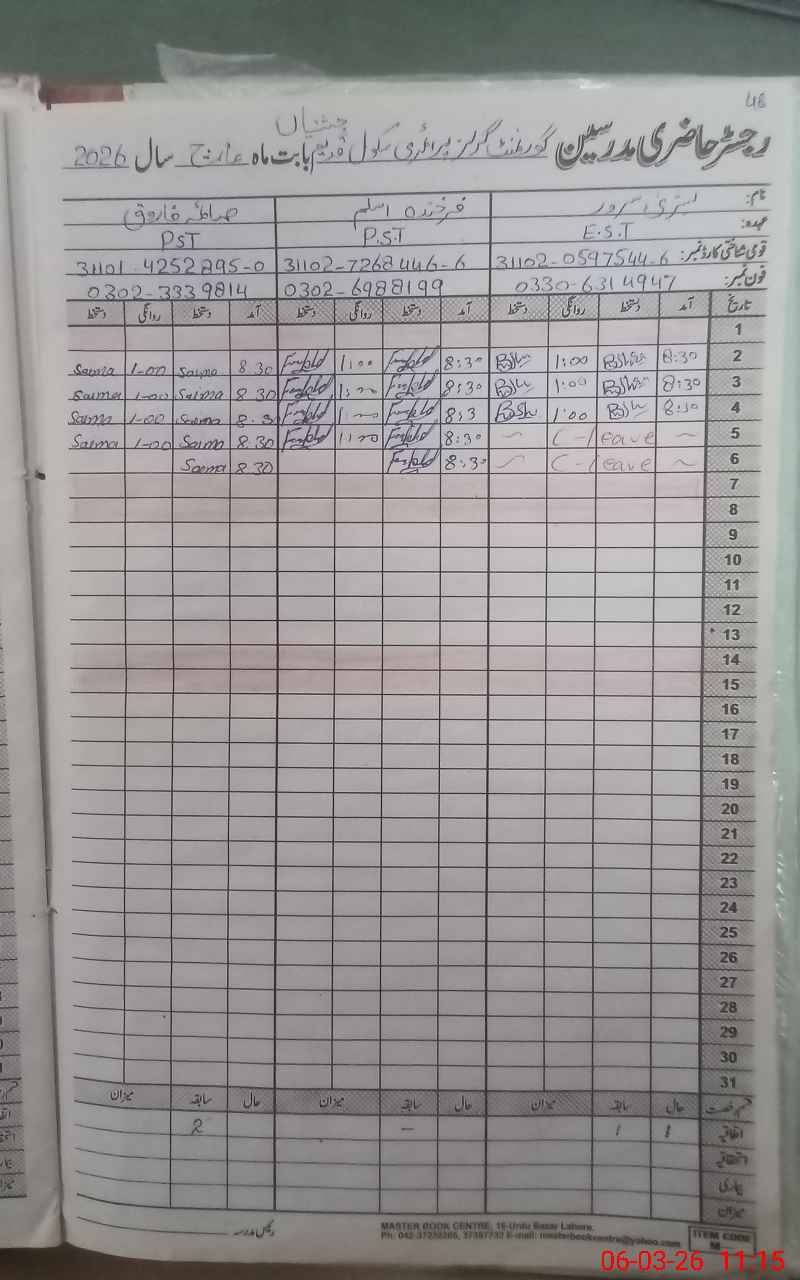 46
چشتیاں
رجسٹر حاضری مدرسین گورنمنٹ گرلز پرائمری سکول قدیم بابت ماہ مارچ سال 2026
نام: بشریٰ سرور فرخندہ اسلم صائمہ فاروق
عہدہ: E.S.T P.S.T PST
قومی شناختی کارڈ نمبر: 31102-0597544-6 31102-7268446-6 31101-4252895-0
فون نمبر: 0330-6314947 0302-6988199 0302-3339814
تاریخ آمد دستخط روانگی دستخط آمد دستخط روانگی دستخط آمد دستخط روانگی دستخط
1
2 8:30 1:00 8:30 1:00 8.30 Saima 1-00 Saima
3 8:30 1:00 8:30 1:00 8.30 Saima 1-00 Saima
4 8:30 1:00 8:3 1:00 8.30 Saima 1-00 Saima
5 ~ C-leave ~ 8:30 1:00 8.30 Saima 1-00 Saima
6 ~ C-leave ~ 8:30 8.30 Saima
7
8
9
10
11
12
13
14
15
16
17
18
19
20
21
22
23
24
25
26
27
28
29
30
31
قسم رخصت حال سابقہ میزان حال سابقہ میزان حال سابقہ میزان
اتفاقیہ 1 1 - 2
استحقاقیہ
بیماری
میزان
رئیس مدرسہ
MASTER BOOK CENTRE, 16-Urdu Bazar Lahore.
ITEM CODE
M
06-03-26 11:15